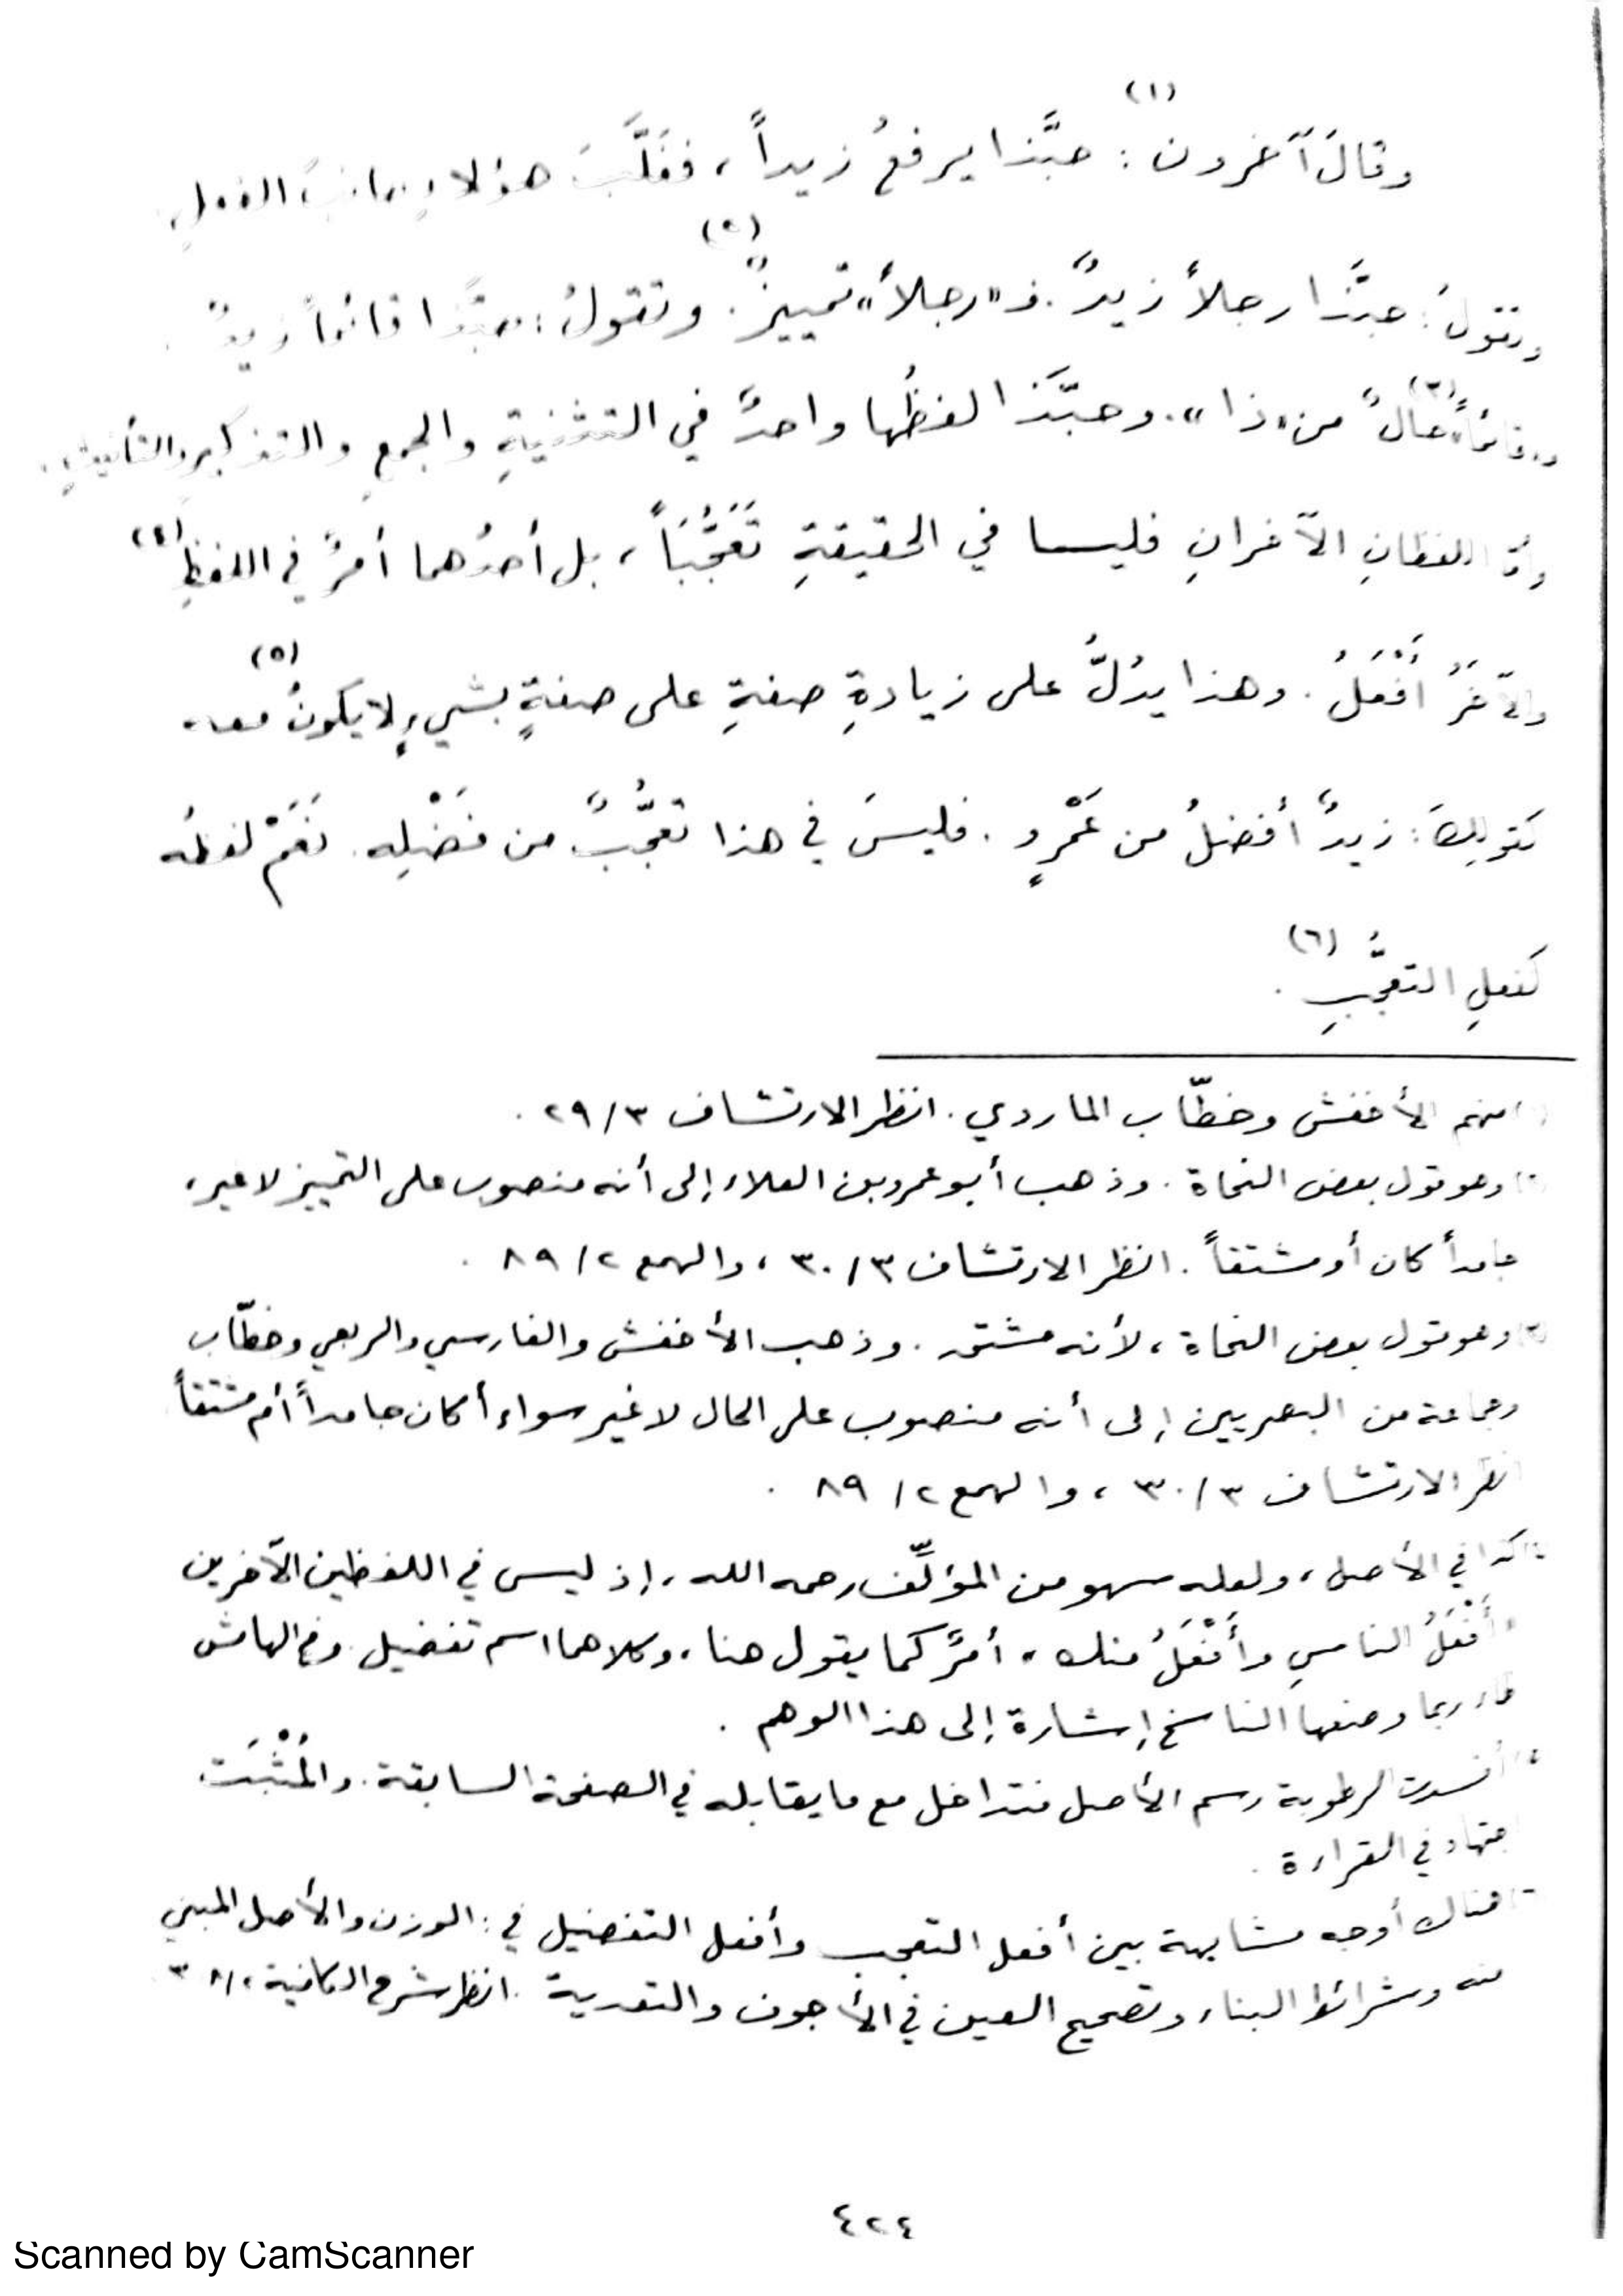 (١)
وقالَ آخرون : حبَّذا يرفعُ زيداً ، فغَلَّبَ هؤلاءِ جانبَ الفعلِ
(٢)
وتقولُ : حبَّذا رجلاً زيدٌ . فـ «رجلاً» تمييزٌ . وتقولُ : حبَّذا قائماً زيدٌ .
(٣)
و«قائماً» حالٌ من «ذا» . وحبَّذا لفظُها واحدٌ في التثنيةِ والجمعِ والتذكيرِ والتأنيثِ .
وأمّا اللفظانِ الآخرانِ فليسا في الحقيقةِ تَعَجُّبَاً ، بل أحدُهما أمرٌ في اللفظِ (٤)
والآخَرُ أَفْعَلُ . وهذا يدُلُّ على زيادةِ صفةٍ على صفةٍ بشيءٍ لا يكونُ معه (٥)
كقولِكَ : زيدٌ أفضلُ من عَمْرٍو . فليسَ في هذا تعجُّبٌ من فَضْلِه . نَعَمْ لفظُه
كفعلِ التعجُّبِ (٦) .
منهم الأخفش وخطّاب الماردي . انظر الارتشاف ٢٩/٣ .
وهو قول بعض النحاة . وذهب أبو عمرو بن العلاء إلى أنه منصوب على التمييز لا غير ،
جامداً كان أو مشتقاً . انظر الارتشاف ٣٠/٣ ، والهمع ٨٩/٢ .
(٣) وهو قول بعض النحاة ، لأنه مشتق . وذهب الأخفش والفارسي والربعي وخطّاب
وجماعة من البصريين إلى أنه منصوب على الحال لا غير سواء أكان جامداً أم مشتقاً
انظر الارتشاف ٣٠/٣ ، والهمع ٨٩/٢ .
كذا في الأصل ، ولعله سهو من المؤلِّف رحمه الله ، إذ ليس في اللفظين الآخرين
«أَفْعَلُ الناسِ وأَفْعَلُ منك» أمرٌ كما يقول هنا ، وكلاهما اسم تفضيل . وفي الهامش
ربما وضعها الناسخ إشارة إلى هذا الوهم .
أفسدت الرطوبة رسم الأصل فتداخل مع ما يقابله في الصفحة السابقة . والمُثْبَت
اجتهاد في القراءة .
هناك أوجه مشابهة بين أفعل التعجب وأفعل التفضيل في : الوزن والأصل المبني
منه وشرائط البناء وتصحيح العين في الأجوف والتعدية . انظر شرح الكافية
٤٢٤
Scanned by CamScanner